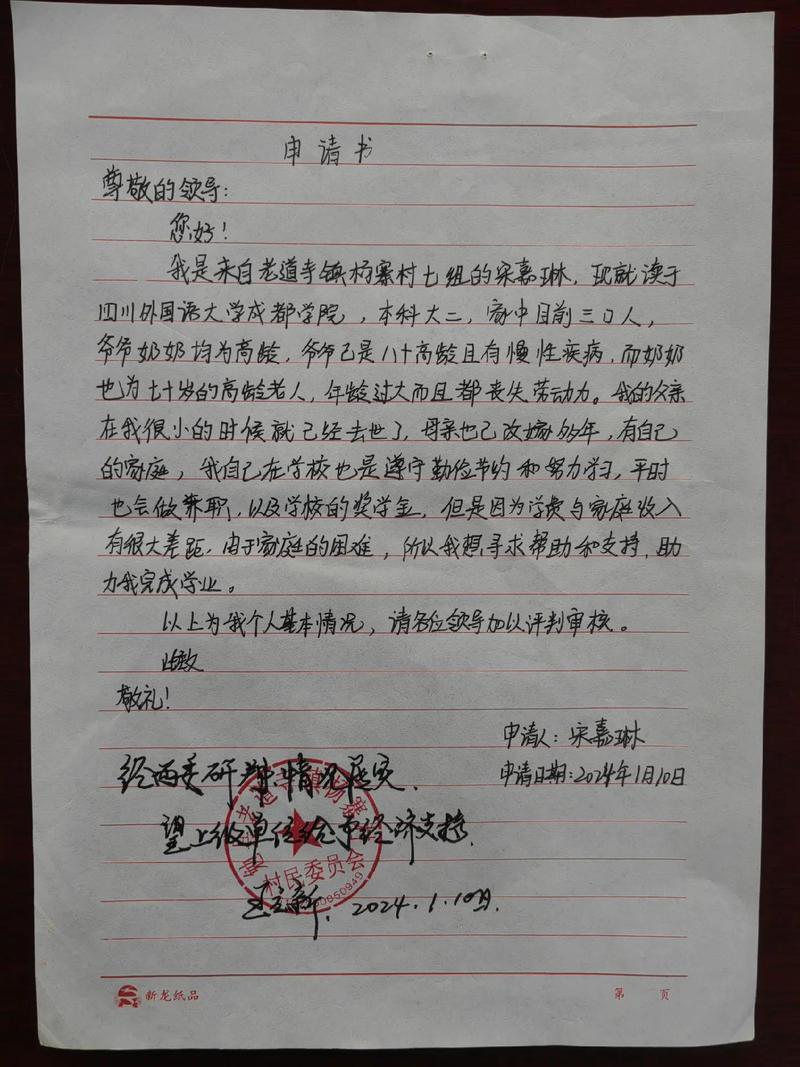 申请书
尊敬的领导:
您好!
我是来自老道寺镇杨寨村七组的宋嘉琳,现就读于
四川外国语大学成都学院,本科大二,家中目前三口人,
爷爷奶奶均为高龄,爷爷已是八十高龄且有慢性疾病,而奶奶
也为七十岁的高龄老人,年龄过大而且都丧失劳动力。我的父亲
在我很小的时候就已经去世了,母亲也已改嫁多年,有自己
的家庭,我自己在学校也是遵守勤俭节约和努力学习,平时
也会做兼职,以及学校的奖学金,但是因为学费与家庭收入
有很大差距,由于家庭的困难,所以我想寻求帮助和支持,助
力我完成学业。
以上为我个人基本情况,请各位领导加以评判审核。
此致
敬礼!
申请人:宋嘉琳
申请日期:2024年1月10日
经两委研判情况属实.
望上级单位给予经济支持.
老道寺镇杨寨
村民委员会
新. 2024.1.10日.
新龙纸品
第 页